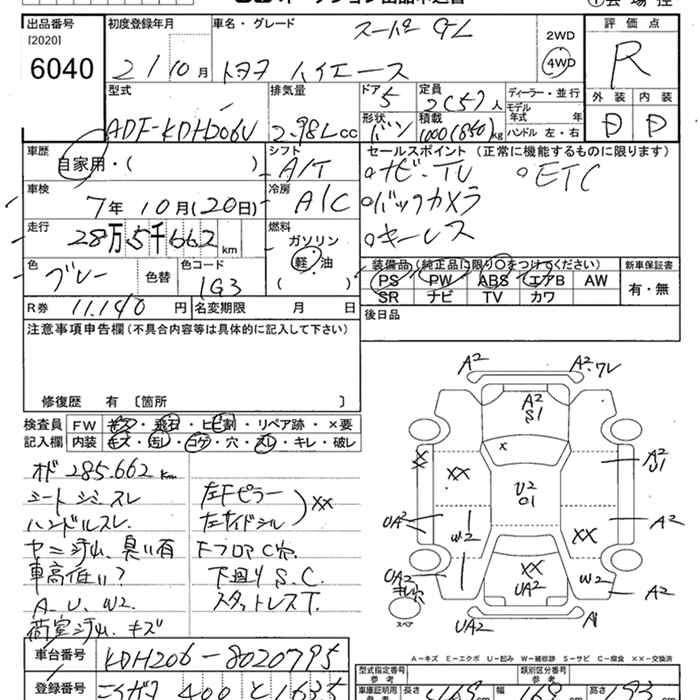 出品番号
[2020]
6040
初度登録年月
21 10 月
車名・グレード
スーパー GL
トヨタ ハイエース
2WD
4WD
評価点
R
外装 内装
D D
型式
ADF-KDH206V
排気量
2.98L cc
ドア
5
形状
バン
定員
2(5) 人
積載
1000(850) kg
ディーラー・並行
モデル
年式 年
ハンドル 左・右
車歴
自家用・( )
シフト
A/T
セールスポイント (正常に機能するものに限ります)
ナビ・TV ETC
バックカメラ
キーレス
車検
7年 10月(20日)
冷房
A/C
走行
28万5千662 km
燃料
ガソリン
軽・油
( )
色
グレー
色替
色コード
1G3
装備品 (純正品に限り○をつけてください)
PS PW ABS エアB AW
SR ナビ TV カワ
新車保証書
有・無
R券 11.140 円
名変期限 月 日
後日品
注意事項申告欄(不具合内容等は具体的に記入して下さい)
修復歴 有 〔箇所 〕
検査員
記入欄
FW キズ・飛石・ヒビ割・リペア跡・×要
内装 キズ・汚レ・コゲ・穴・スレ・キレ・破レ
オド 285.662 km
シート シミ スレ
ハンドルスレ.
ヤニ 汚れ、臭い有
車高低い?
A.U.W2.
荷室汚れ、キズ
左Fピラー
左サイドシル
XX
Fフロア C穴.
下廻り S.C.
スタットレスT.
A2
A2.ワレ
A2
S1
X
X
X
XX
U2
01
A2
U1
UA2
W2
XX
A2
UA2
キレ
XX
UA2
W2
A2
スペア
UA2
A1
A-キズ E-エクボ U-凹み W-補修跡 S-サビ C-腐食 ××-交換済
車台番号
KDH206-8020795
登録番号
400 と 1635
型式指定番号
参考
類別区分番号
参考
車庫証明用
長さ
幅
高さ